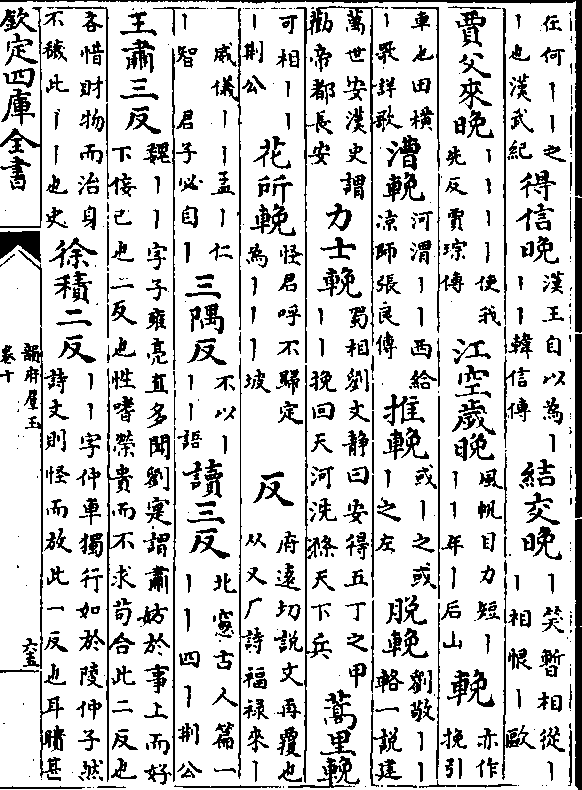 任何丨丨之丨也漢武紀得信晚漢王自以為丨丨丨韓信傳結交晚丨笑暫相從丨丨相恨丨歐
賈父來晚丨丨丨丨使我先反賈琮傳江空歲晚風帆目力短丨丨丨年丨后山輓亦作挽引
車也田橫丨歌詳歌漕輓河渭丨丨西給京師張良傳推輓或丨之或丨之左脫輓劉敬丨丨輅一說建
萬世安漢史謂勸帝都長安力士輓蜀相劉文靜曰安得五丁之甲丨丨挽回天河洗滌天下兵蒿里輓
可相丨丨丨荆公花所輓怪君呼不歸定為丨丨丨坡反府遠切說文再覆也从又厂詩福禄來丨
威儀丨丨孟丨仁丨智君子必自丨三隅反不以丨丨丨語讀三反北窓古人篇一丨丨四丨荆公
王肅三反魏丨丨字子雍亮直多聞劉寔謂肅妨於事上而好下佞己也二反也性嗜榮貴而不求苟合此二反也
吝惜財物而治身不穢此丨丨也史徐積二反丨丨字仲車獨行如於陵仲子然詩文則怪而放此一反也耳聵甚
欽定四庫全書
韻府羣玉
卷十
六五